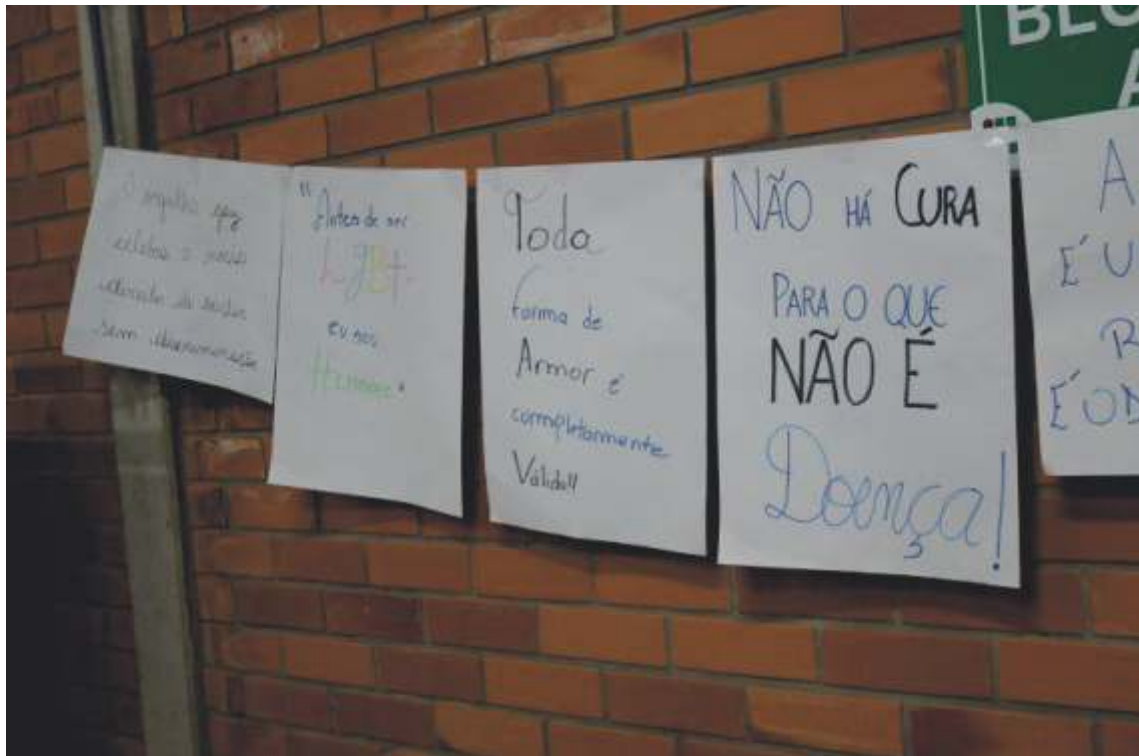 O orgulho gay
celebra o nosso
direito de existir
sem discriminação
"Antes de ser
LgBt.
eu sou
Humano"
Toda
forma de
Armor é
completarmente
Válida!!
NÃO HÁ CURA
PARA O QUE
NÃO É
Doença!
A
É U
R
É OD
BLO
A